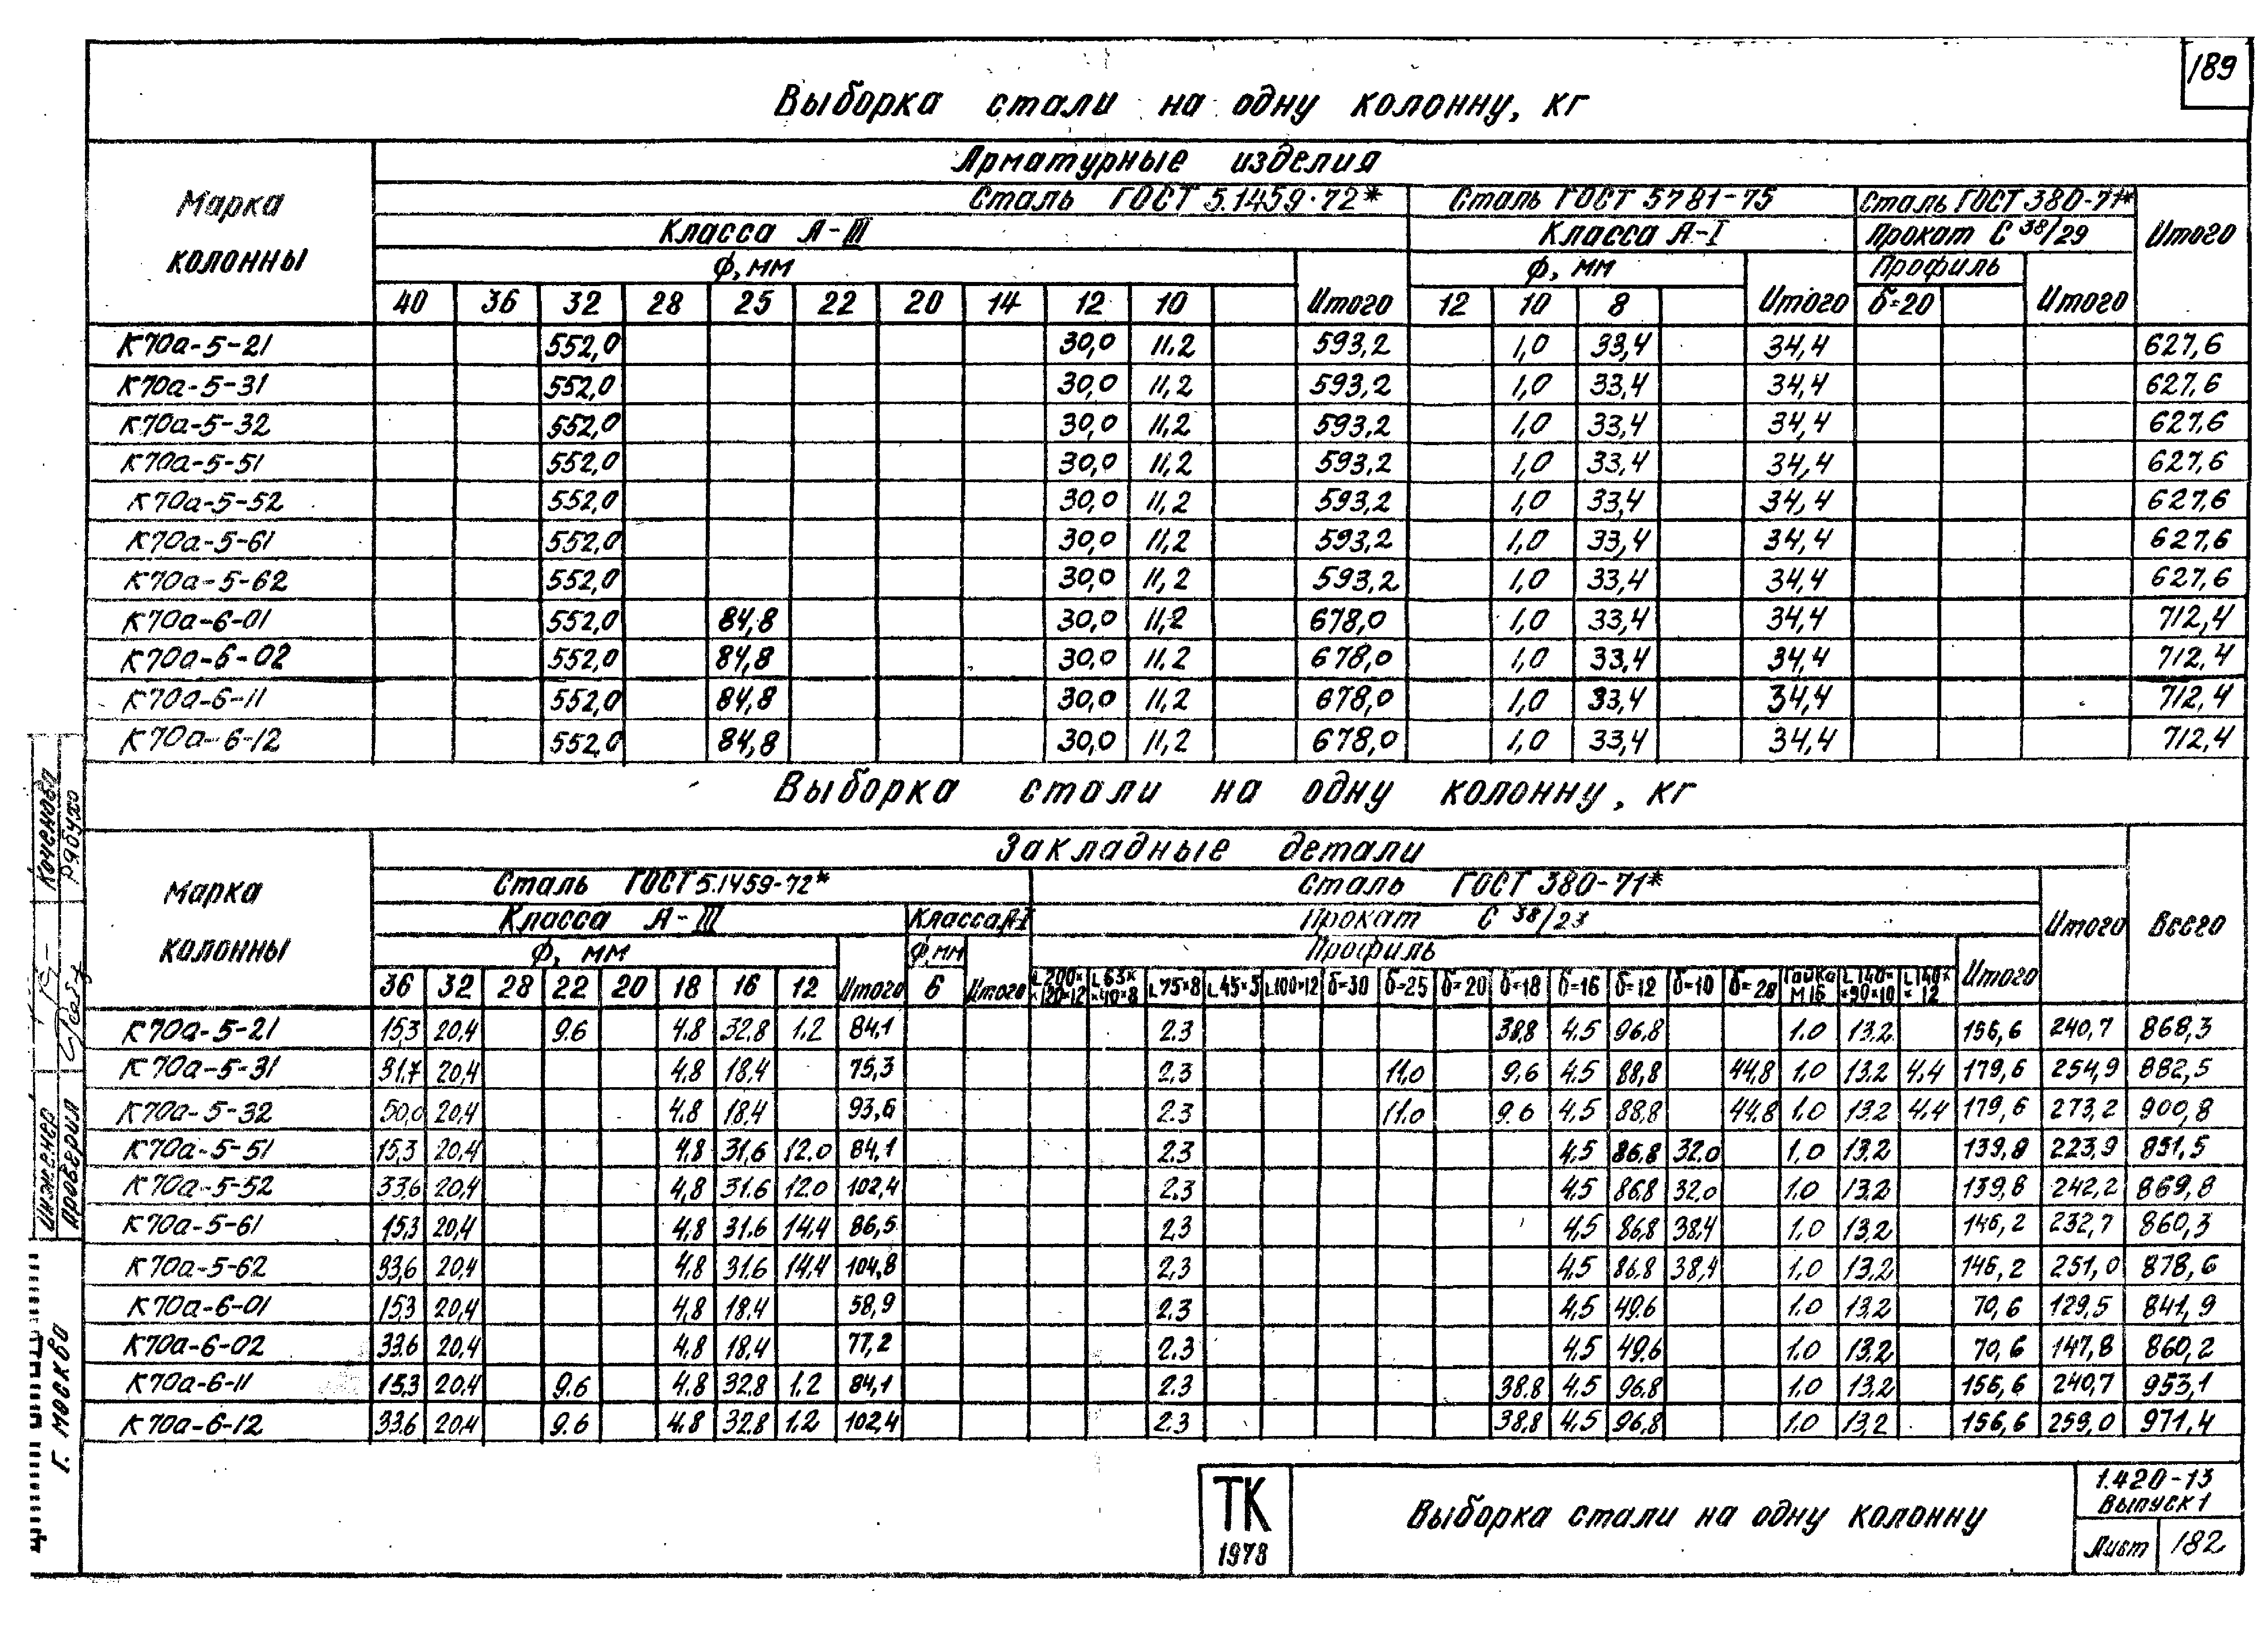 189
Выборка стали на одну колонну, кг
Марка колонны
Арматурные изделия
Сталь ГОСТ 5.1459-72* Сталь ГОСТ 5781-75 Сталь ГОСТ 380-71* Итого
Класса А-III Класса А-I Прокат С 38/29
Ф, мм Итого Ф, мм Итого Профиль Итого
40 36 32 28 25 22 20 14 12 10 12 10 8 δ=20
К70а-5-21 552,0 30,0 11,2 593,2 1,0 33,4 34,4 627,6
К70а-5-31 552,0 30,0 11,2 593,2 1,0 33,4 34,4 627,6
К70а-5-32 552,0 30,0 11,2 593,2 1,0 33,4 34,4 627,6
К70а-5-51 552,0 30,0 11,2 593,2 1,0 33,4 34,4 627,6
К70а-5-52 552,0 30,0 11,2 593,2 1,0 33,4 34,4 627,6
К70а-5-61 552,0 30,0 11,2 593,2 1,0 33,4 34,4 627,6
К70а-5-62 552,0 30,0 11,2 593,2 1,0 33,4 34,4 627,6
К70а-6-01 552,0 84,8 30,0 11,2 678,0 1,0 33,4 34,4 712,4
К70а-6-02 552,0 84,8 30,0 11,2 678,0 1,0 33,4 34,4 712,4
К70а-6-11 552,0 84,8 30,0 11,2 678,0 1,0 33,4 34,4 712,4
К70а-6-12 552,0 84,8 30,0 11,2 678,0 1,0 33,4 34,4 712,4
Выборка стали на одну колонну, кг
Марка колонны
Закладные детали Всего
Сталь ГОСТ 5.1459-72* Сталь ГОСТ 380-71* Итого
Класса А-III Класса А-I Прокат С 38/23
Ф, мм Итого Ф, мм Итого Профиль Итого
36 32 28 22 20 18 16 12 6 L200××120×12 L63××40×8 L75×8 L45×5 L100×12 δ=30 δ=25 δ=20 δ=18 δ=16 δ=12 δ=10 δ=28 Гайка М16 L140××90×10 L140××12
К70а-5-21 15,3 20,4 9.6 4.8 32.8 1.2 84,1 2.3 38,8 4.5 96.8 1.0 13,2 156,6 240,7 868,3
К70а-5-31 31,7 20,4 4,8 18,4 75,3 2.3 11,0 9,6 4.5 88,8 44,8 1,0 13,2 4,4 179,6 254,9 882,5
К70а-5-32 50,0 20,4 4.8 18,4 93,6 2.3 11,0 9.6 4,5 88,8 44,8 1.0 13,2 4,4 179,6 273,2 900,8
К70а-5-51 15,3 20,4 4,8 31,6 12.0 84,1 2.3 4,5 86,8 32,0 1,0 13,2 139,8 223,9 851,5
К70а-5-52 33,6 20,4 4,8 31.6 12.0 102,4 2.3 4.5 86,8 32,0 1.0 13,2 139,8 242,2 869,8
К70а-5-61 15,3 20,4 4,8 31.6 14,4 86,5 2,3 4,5 86,8 38,4 1,0 13,2 146,2 232,7 860,3
К70а-5-62 33,6 20,4 4,8 31.6 14,4 104,8 2,3 4,5 86.8 38,4 1,0 13,2 146,2 251,0 878,6
К70а-6-01 15,3 20,4 4,8 18,4 58,9 2.3 4,5 49,6 1.0 13,2 70,6 129,5 841,9
К70а-6-02 33,6 20,4 4,8 18,4 77,2 2.3 4.5 49,6 1.0 13,2 70,6 147,8 860,2
К70а-6-11 15,3 20,4 9.6 4.8 32.8 1.2 84,1 2.3 38.8 4.5 96.8 1.0 13,2 156,6 240,7 953,1
К70а-6-12 33,6 20,4 9.6 4.8 32.8 1.2 102,4 2.3 38,8 4,5 96,8 1,0 13,2 156,6 259,0 971,4
Инженер Коченова
Проверил Рябухо
г. Москва
ТК
1978
Выборка стали на одну колонну
1.420-13
Выпуск 1
Лист 182